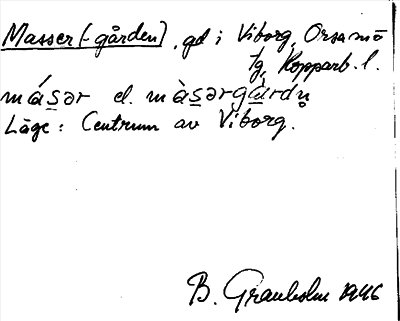 Masser (-gården), gd i Viborg, Orsa sn
Kopparb. l.
má̱sər el. mà̱sərgá̱rdn̥
Läge: Centrum av Viborg.
B. Granholm 1946